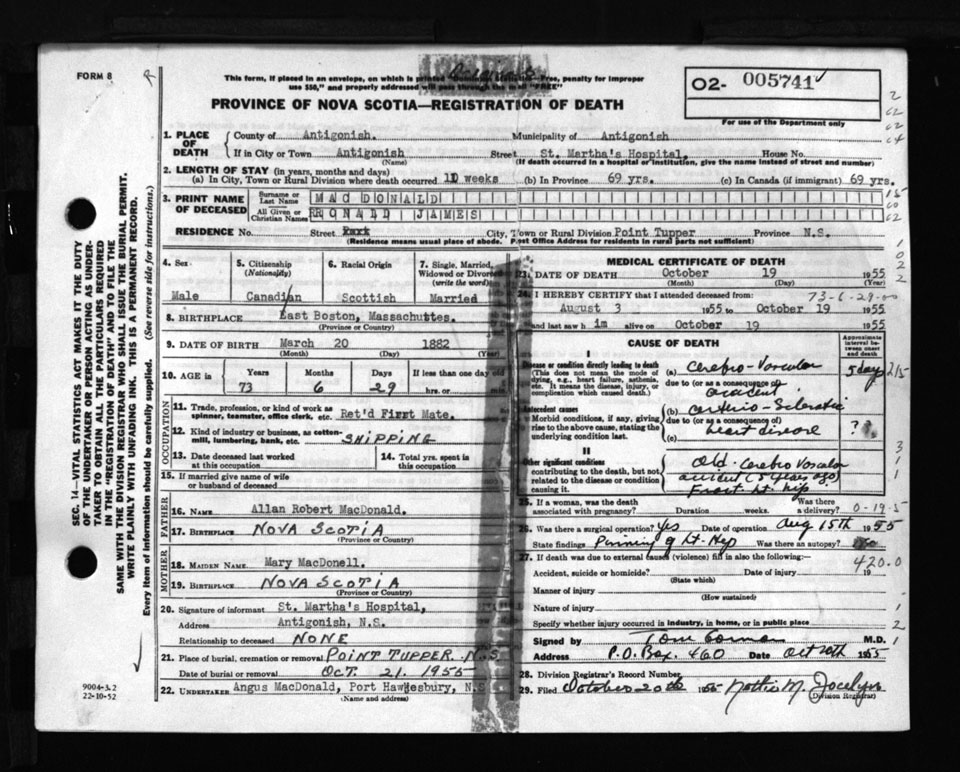 FORM 8
This form, if placed in an envelope, on which is printed Free, penalty for improper
use $50," and properly addressed will pass through the mail "FREE"
PROVINCE OF NOVA SCOTIA—REGISTRATION OF DEATH
O2- 005741
For use of the Department only
1. PLACE OF DEATH
County of Antigonish. Municipality of Antigonish
If in City or Town Antigonish Street St. Martha's Hospital, House No.
(Name) (If death occurred in a hospital or institution, give the name instead of street and number)
2. LENGTH OF STAY (in years, months and days)
(a) In City, Town or Rural Division where death occurred 11 weeks (b) In Province 69 yrs. (c) In Canada (if immigrant) 69 yrs.
3. PRINT NAME OF DECEASED
Surname or Last Name MAC DONALD
All Given or Christian Names RONALD JAMES
RESIDENCE No. Street City, Town or Rural Division Point Tupper Province N.S.
(Residence means usual place of abode. Post Office Address for residents in rural parts not sufficient)
4. Sex
5. Citizenship (Nationality)
6. Racial Origin
7. Single, Married, Widowed or Divorced (write the word)
Male Canadian Scottish Married
8. BIRTHPLACE East Boston, Massachuttes.
(Province or Country)
9. DATE OF BIRTH March 20 1882
(Month) (Day) (Year)
10. AGE in Years Months Days If less than one day old
73 6 29 hrs. or min.
OCCUPATION
11. Trade, profession, or kind of work as spinner, teamster, office clerk, etc. Ret'd First Mate.
12. Kind of industry or business, as cotton-mill, lumbering, bank, etc. SHIPPING
13. Date deceased last worked at this occupation
14. Total yrs. spent in this occupation
15. If married give name of wife or husband of deceased
FATHER
16. Name Allan Robert MacDonald.
17. Birthplace NOVA SCOTIA
(Province or Country)
MOTHER
18. Maiden Name Mary MacDonell.
19. Birthplace NOVA SCOTIA
(Province or Country)
20. Signature of informant St. Martha's Hospital,
Address Antigonish, N.S.
Relationship to deceased NONE
21. Place of burial, cremation or removal POINT TUPPER N.S
Date of burial or removal OCT. 21. 1955
22. Undertaker Angus MacDonald, Port Hawkesbury, N.S
(Name and address)
MEDICAL CERTIFICATE OF DEATH
23. DATE OF DEATH October 19 1955
(Month) (Day) (Year)
24. I HEREBY CERTIFY that I attended deceased from:
73-6-29-00
August 3 1955 to October 19 1955
and last saw him alive on October 19 1955
CAUSE OF DEATH
Approximate interval between onset and death
I
Disease or condition directly leading to death
(This does not mean the mode of dying, e.g., heart failure, asthenia, etc. It means the disease, injury, or complication which caused death.)
(a) Cerebro-Vascular 5 day
due to (or as a consequence of)
accident
Antecedent causes
Morbid conditions, if any, giving rise to the above cause, stating the underlying condition last.
(b) arterio-Sclerotic
due to (or as a consequence of)
(c) heart disease ?
II
Other significant conditions
contributing to the death, but not related to the disease or condition causing it.
Old-Cerebro Vascular
accident (5 years ago)
Fract. Lt. hip
25. If a woman, was the death associated with pregnancy? Duration weeks. Was there a delivery? 0-19-5
26. Was there a surgical operation? Yes Date of operation Aug 15th 1955
State findings Pinning of Lt-Hip Was there an autopsy? no
27. If death was due to external causes (violence) fill in also the following:—
420.0
Accident, suicide or homicide? Date of injury 19
(State which)
Manner of injury
(How sustained)
Nature of injury
Specify whether injury occurred in industry, in home, or in public place
Signed by Tom Gorman M.D.
Address P.O. Box. 460 Date Oct 20th 1955
28. Division Registrar's Record Number
29. Filed October 20th 1955 Mottie M. Jocelyn
(Division Registrar)
SEC. 14—VITAL STATISTICS ACT MAKES IT THE DUTY
OF THE UNDERTAKER OR PERSON ACTING AS UNDER-
TAKER TO OBTAIN ALL THE PARTICULARS REQUIRED
IN THE "REGISTRATION OF DEATH" AND TO FILE THE
SAME WITH THE DIVISION REGISTRAR WHO SHALL ISSUE THE BURIAL PERMIT.
WRITE PLAINLY WITH UNFADING INK. THIS IS A PERMANENT RECORD.
Every item of information should be carefully supplied. (See reverse side for instructions.)
9004-3.2
22-10-52